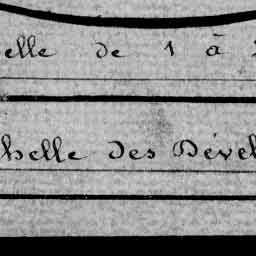 elle de 1 à
helle des Dével